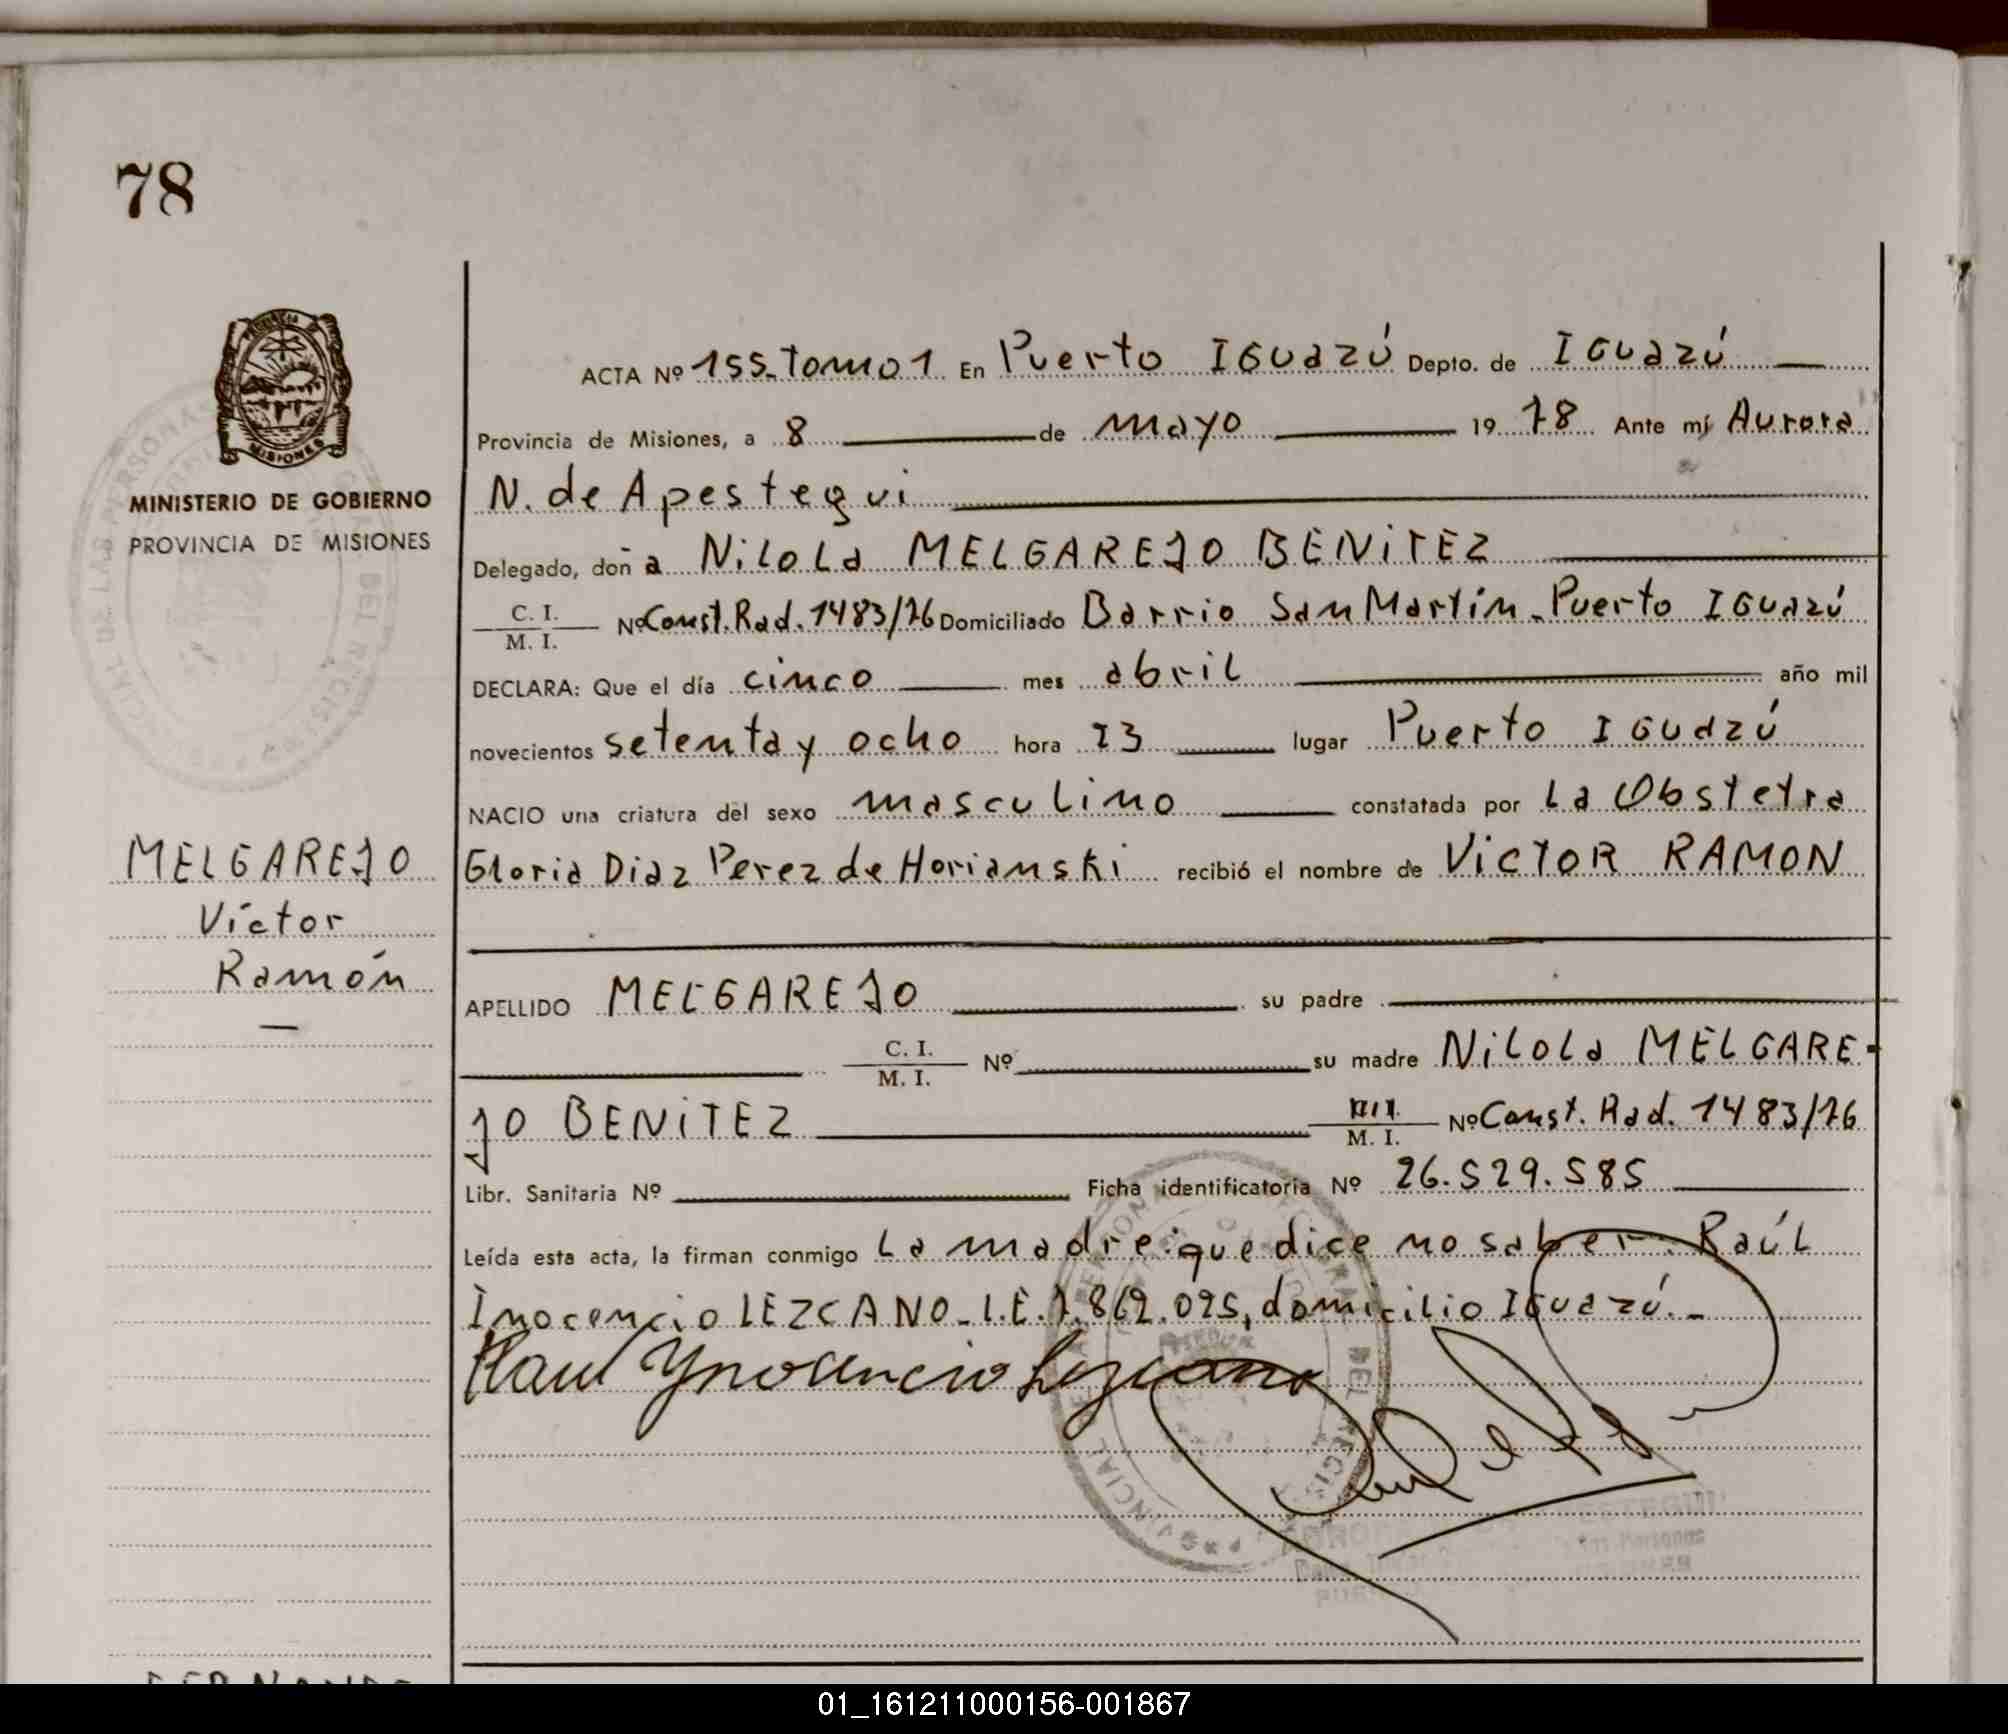 78
ACTA Nº 155-Tomo 1 En Puerto IGuazú Depto. de IGuazú
Provincia de Misiones, a 8 de mayo 1978 Ante mí Aurora
MINISTERIO DE GOBIERNO
PROVINCIA DE MISIONES
N. de Apestegui
Delegado, doña Nilola MELGAREJO BENITEZ
C. I.
M. I. Nº Const. Rad. 1483/76 Domiciliado Barrio San Martín - Puerto IGuazú
DECLARA: Que el día cinco mes abril año mil
novecientos setenta y ocho hora 23 lugar Puerto IGuazú
NACIO una criatura del sexo masculino constatada por La Obstetra
Gloria Diaz Perez de Horianski recibió el nombre de VICTOR RAMON
MELGAREJO
Víctor
Ramón
APELLIDO MELGAREJO su padre
C. I.
M. I. Nº su madre Nilola MELGARE-
JO BENITEZ M. I. Nº Const. Rad. 1483/76
Libr. Sanitaria Nº Ficha identificatoria Nº 26.529.585
Leída esta acta, la firman conmigo La madre que dice no saber. Raúl
Inocencio LEZCANO - L.E. 7.862.095, domicilio IGuazú.-
Raul Ynocencio Lezcano
01_161211000156-001867